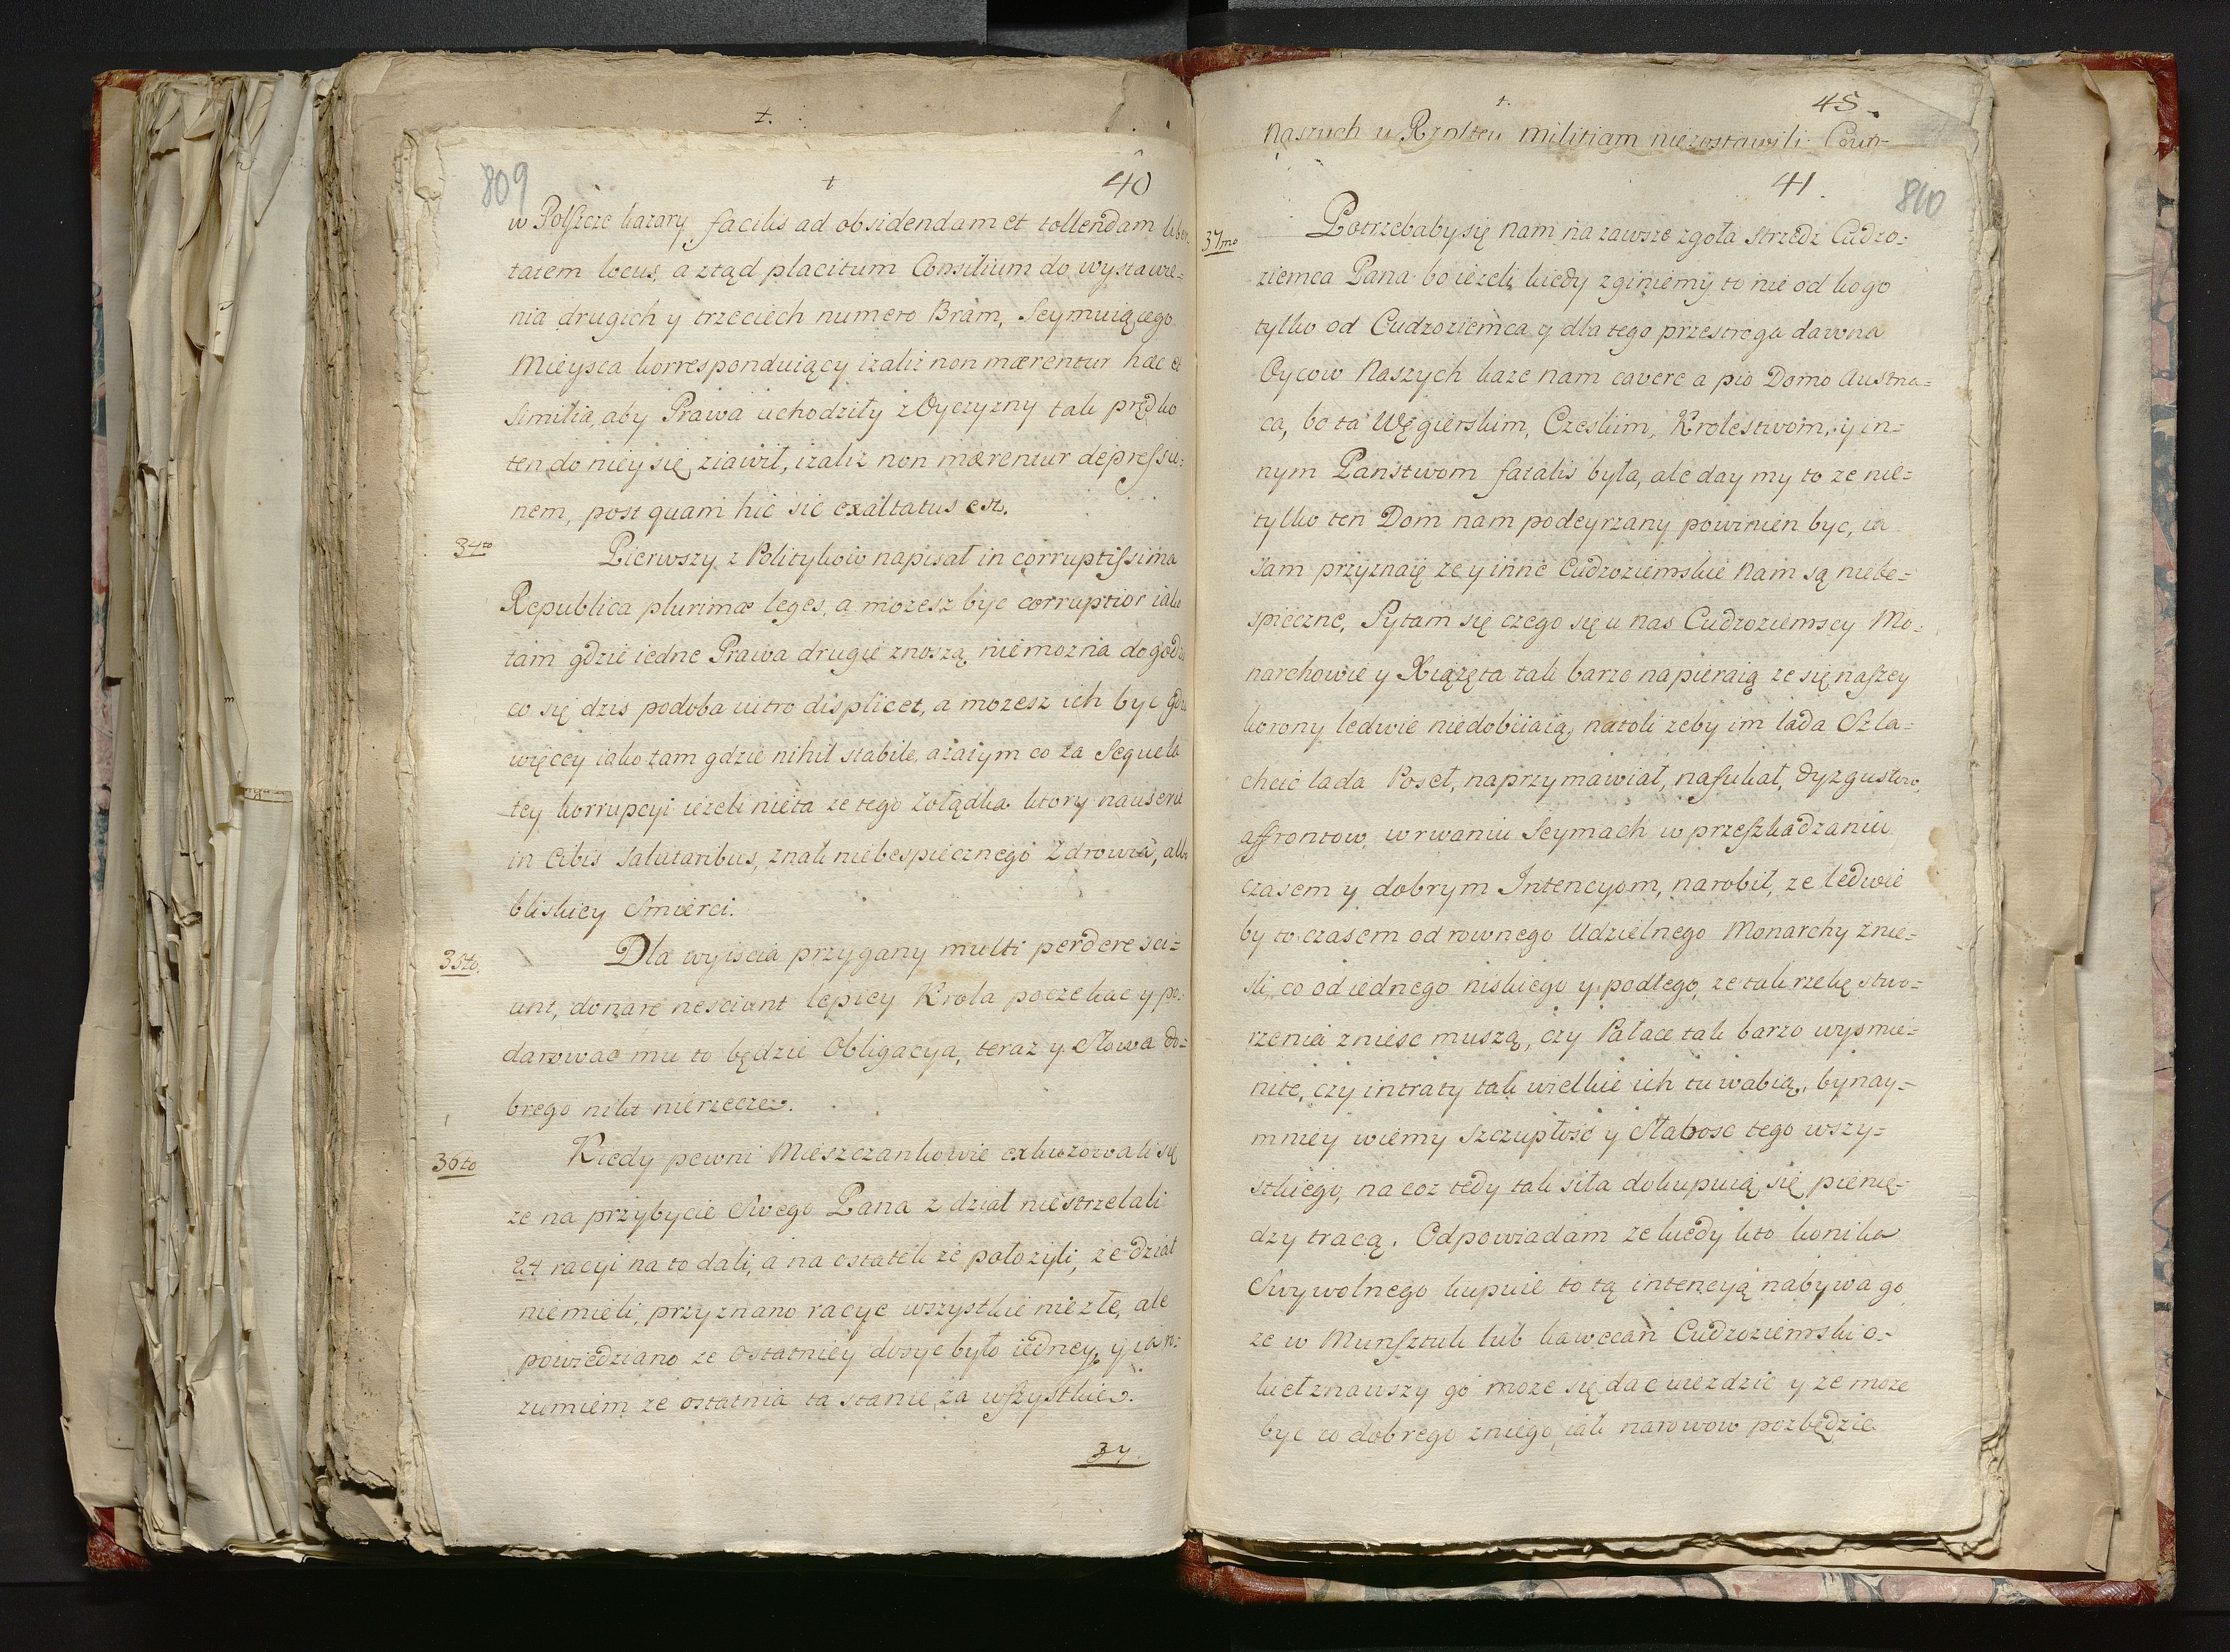 809
40
w Polszcze hazary facilis ad obsidendam et tollendam liber
tatem locus, a ztąd placitum Consilium do wystawie=
nia drugich y trzeciech numero Bram, Seymuiącego
Mieysca korresponduiący izaliż non mærentur hæc et
similia, aby Prawa uchodziły z Oyczyzny tak prędko
ten do niey się ziawił, izaliz non mærentur depressio=
nem, post quam hic sic exaltatus est.
34to
Pierwszy z Politykow napisał in corruptissima
Republica plurimæ leges, a mozesz byc corruptior iako
tam gdzie iedne Prawa drugie znoszą, niemozna
co się dzis podoba iutro displicet, a mozesz ich byc
więcey iako tam gdzie nihil stabile, azatym co za Sequela
tey korrupcyi iezeli nieta ze tego żołądka ktory
in Cibis salutaribus, znak niebespiecznego zdrowia, albo
bliskiey Smierci.
35to.
Dla wyiscia przygany multi perdere sci=
unt, donare nesciunt lepiey Krola poczekac y po=
darowac mu to będzie Obligacya, teraz y Słowa do=
brego nikt nierzecze.
36to
Kiedy pewni Mieszczankowie exkuzowali się
ze na przybycie Swego Pana z dział niestrzelali
24 racyi na to dali, a na ostatek ze położyli, ze dział
niemieli, przyznano racye wszystkie niezłe, ale
powiedziano ze Ostatniey dosyc było iedney, y ia ro=
zumiem ze ostatnia ta stanie za wszystkie.
37.
45.
naszych u Rzpltey militiam niezostawili
41.
810
37mo
Potrzebaby się nam na zawsze zgoła strzedz Cudzo=
ziemca Pana bo iezeli kiedy zginiemy to nie od kogo
tylko od Cudzoziemca y dla tego przestroga dawna
Oycow Naszych kaze nam cavere a pio Domo Austria=
ca, bo ta Węgierskim, Czeskim, Krolestwom, y in=
nym Panstwom fatalis była, ale day my to ze nie=
tylko ten Dom nam podeyrzany powinien byc, ia
sam przyznaię ze y inne Cudzoziemskie Nam są niebe=
spieczne, Pytam się czego się u nas Cudzoziemscy Mo=
narchowie y Xiązęta tak barzo napieraią ze się naszey
korony ledwie niedobiiaią, natoli zeby im lada Szla=
chcic lada Poseł, naprzymawiał, nafukał, dyzgustow,
affrontow, w rwaniu Seymach w przeszkadzaniu
czasem y dobrym Intencyom, narobił, ze ledwie
by to czasem od rownego Udzielnego Monarchy znie=
sli, co od iednego niskiego y podłego, ze tak rzekę stwo=
rzenia zniesc muszą, czy Pałace tak barzo wysmie=
nite, czy intraty tak wielkie ich tu wabią, bynay=
mniey wiemy Szczupłość y Słabosc tego wszy=
stkiego, na coz tedy tak siła dokupuią się pienię=
dzy tracą. Odpowiadam ze kiedy kto konika
Swywolnego kupuie to tą intencyą nabywa go,
ze w Munsztuk lub kawecan Cudzoziemski o=
kiełznawszy go moze się dac uiezdzic y ze moze
byc co dobrego zniego, iak narowow pozbędzie